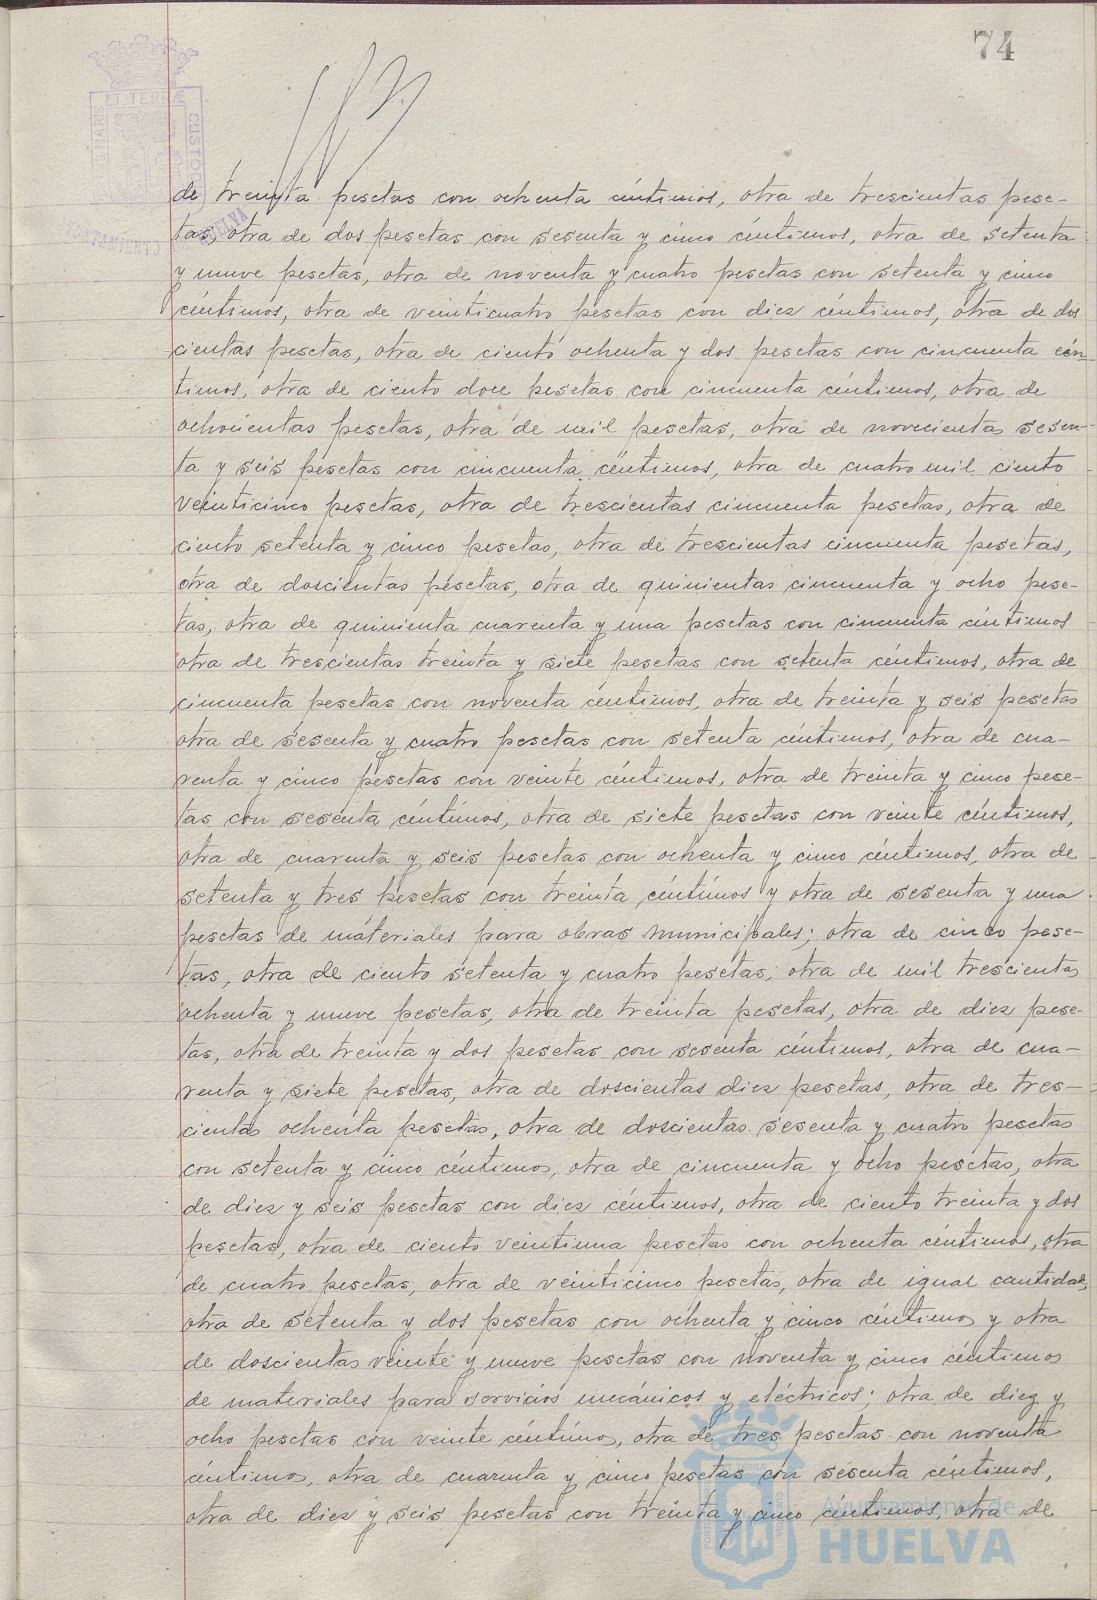 74
PORTUS MARIS ET TERRE CUSTODIA
AYUNTAMIENTO HUELVA
de treinta pesetas con ochenta céntimos, otra de trescientas pese-
tas, otra de dos pesetas con sesenta y cinco céntimos, otra de setenta
y nueve pesetas, otra de noventa y cuatro pesetas con setenta y cinco
céntimos, otra de veinticuatro pesetas con diez céntimos, otra de dos
cientas pesetas, otra de ciento ochenta y dos pesetas con cincuenta cén-
timos, otra de ciento doce pesetas con cincuenta céntimos, otra de
ochocientas pesetas, otra de mil pesetas, otra de novecientas sesen-
ta y seis pesetas con cincuenta céntimos, otra de cuatro mil ciento
veinticinco pesetas, otra de trescientas cincuenta pesetas, otra de
ciento setenta y cinco pesetas, otra de trescientas cincuenta pesetas,
otra de doscientas pesetas, otra de quinientas cincuenta y ocho pese-
tas, otra de quinienta cuarenta y una pesetas con cincuenta céntimos
otra de trescientas treinta y siete pesetas con setenta céntimos, otra de
cincuenta pesetas con noventa céntimos, otra de treinta y seis pesetas
otra de sesenta y cuatro pesetas con setenta céntimos, otra de cua-
renta y cinco pesetas con veinte céntimos, otra de treinta y cinco pese-
tas con sesenta céntimos, otra de siete pesetas con veinte céntimos,
otra de cuarenta y seis pesetas con ochenta y cinco céntimos, otra de
setenta y tres pesetas con treinta céntimos y otra de sesenta y una
pesetas de materiales para obras municipales; otra de cinco pese-
tas, otra de ciento setenta y cuatro pesetas, otra de mil trescientas
ochenta y nueve pesetas, otra de treinta pesetas, otra de diez pese-
tas, otra de treinta y dos pesetas con sesenta céntimos, otra de cua-
renta y siete pesetas, otra de doscientas diez pesetas, otra de tres-
cientas ochenta pesetas, otra de doscientas sesenta y cuatro pesetas
con setenta y cinco céntimos, otra de cincuenta y ocho pesetas, otra
de diez y seis pesetas con diez céntimos, otra de ciento treinta y dos
pesetas, otra de ciento veintiuna pesetas con ochenta céntimos, otra
de cuatro pesetas, otra de veinticinco pesetas, otra de igual cantidad,
otra de setenta y dos pesetas con ochenta y cinco céntimos y otra
de doscientas veinte y nueve pesetas con noventa y cinco céntimos
de materiales para servicios mecánicos y eléctricos; otra de diez y
ocho pesetas con veinte céntimos, otra de tres pesetas con noventa
céntimos, otra de cuarenta y cinco pesetas con sesenta céntimos,
otra de diez y seis pesetas con treinta y cinco céntimos, otra de
Ayuntamiento de
HUELVA